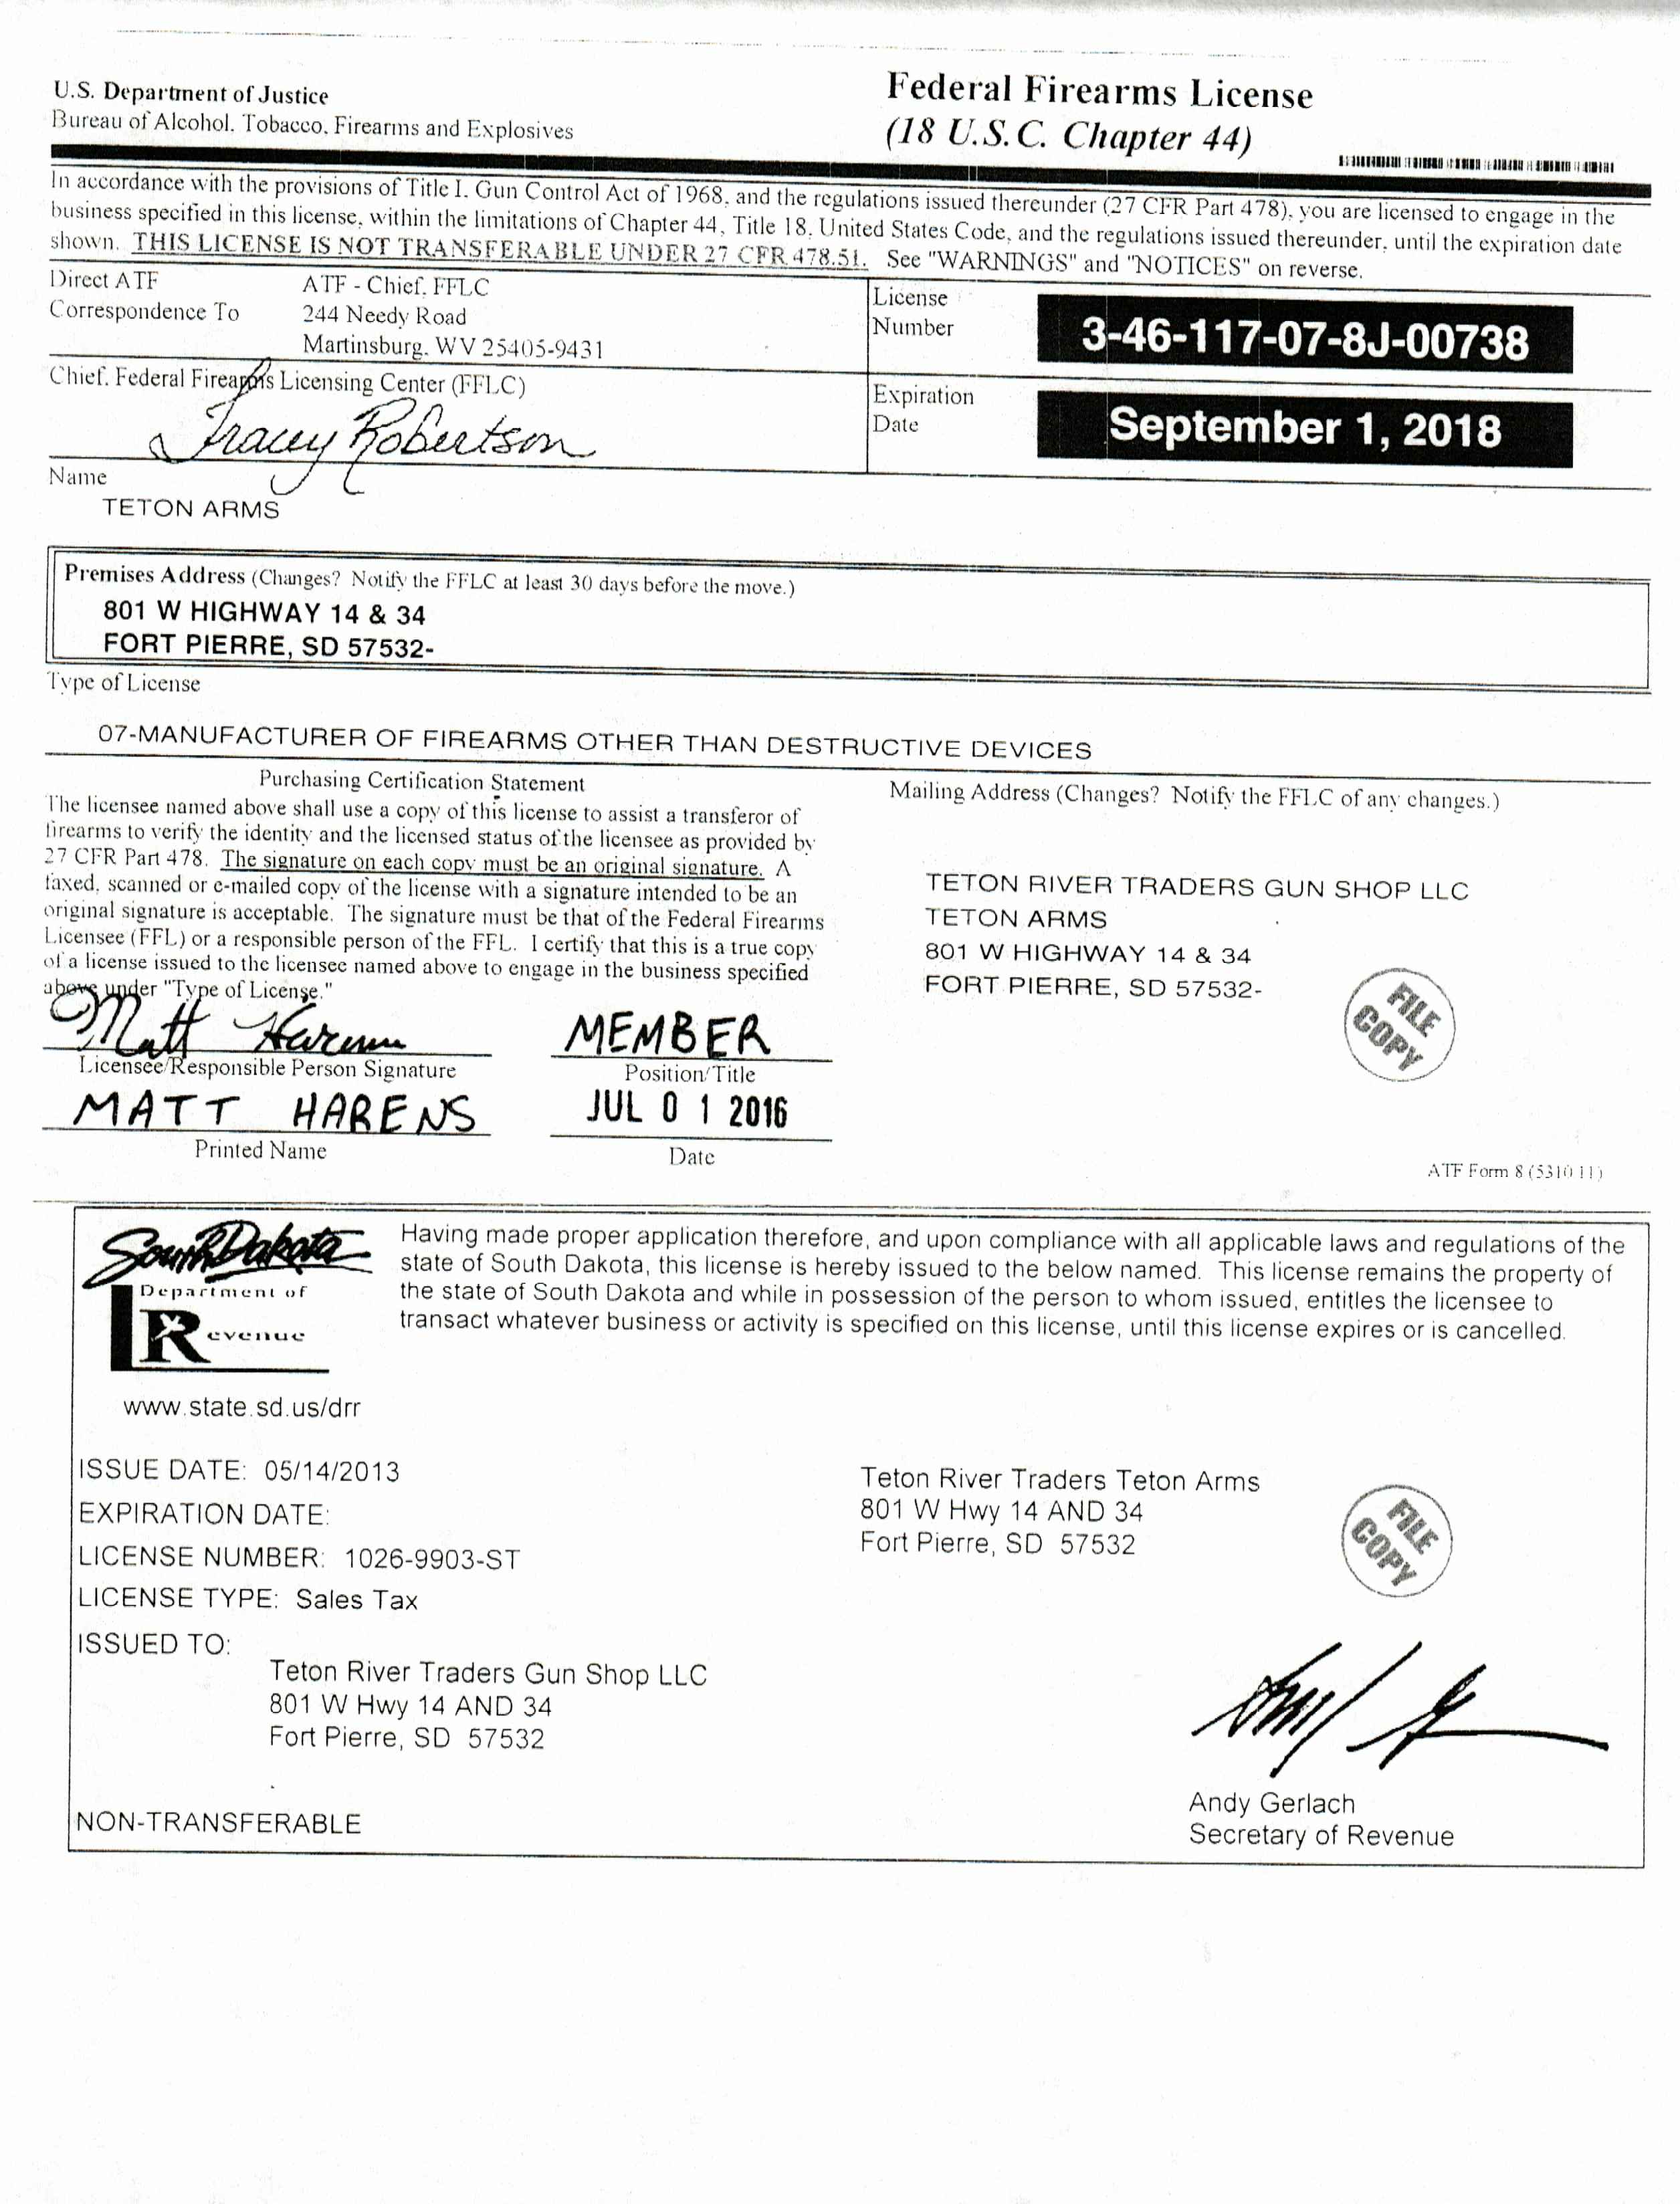 U.S. Department of Justice
Bureau of Alcohol, Tobacco, Firearms and Explosives
Federal Firearms License
(18 U.S.C. Chapter 44)
In accordance with the provisions of Title I, Gun Control Act of 1968, and the regulations issued thereunder (27 CFR Part 478), you are licensed to engage in the
business specified in this license, within the limitations of Chapter 44, Title 18, United States Code, and the regulations issued thereunder, until the expiration date
shown. THIS LICENSE IS NOT TRANSFERABLE UNDER 27 CFR 478.51. See "WARNINGS" and "NOTICES" on reverse.
Direct ATF
Correspondence To
ATF - Chief, FFLC
244 Needy Road
Martinsburg, WV 25405-9431
License
Number
3-46-117-07-8J-00738
Chief, Federal Firearms Licensing Center (FFLC)
Tracey Robertson
Expiration
Date
September 1, 2018
Name
TETON ARMS
Premises Address (Changes? Notify the FFLC at least 30 days before the move.)
801 W HIGHWAY 14 & 34
FORT PIERRE, SD 57532-
Type of License
07-MANUFACTURER OF FIREARMS OTHER THAN DESTRUCTIVE DEVICES
Purchasing Certification Statement
The licensee named above shall use a copy of this license to assist a transferor of
firearms to verify the identity and the licensed status of the licensee as provided by
27 CFR Part 478. The signature on each copy must be an original signature. A
faxed, scanned or e-mailed copy of the license with a signature intended to be an
original signature is acceptable. The signature must be that of the Federal Firearms
Licensee (FFL) or a responsible person of the FFL. I certify that this is a true copy
of a license issued to the licensee named above to engage in the business specified
above under "Type of License."
Matt Harens
Licensee/Responsible Person Signature
MEMBER
Position/Title
MATT HARENS
Printed Name
JUL 01 2016
Date
Mailing Address (Changes? Notify the FFLC of any changes.)
TETON RIVER TRADERS GUN SHOP LLC
TETON ARMS
801 W HIGHWAY 14 & 34
FORT PIERRE, SD 57532-
FILE
COPY
ATF Form 8 (5310.11)
South Dakota
Department of
Revenue
www.state.sd.us/drr
Having made proper application therefore, and upon compliance with all applicable laws and regulations of the
state of South Dakota, this license is hereby issued to the below named. This license remains the property of
the state of South Dakota and while in possession of the person to whom issued, entitles the licensee to
transact whatever business or activity is specified on this license, until this license expires or is cancelled.
ISSUE DATE: 05/14/2013
EXPIRATION DATE:
LICENSE NUMBER: 1026-9903-ST
LICENSE TYPE: Sales Tax
ISSUED TO:
Teton River Traders Gun Shop LLC
801 W Hwy 14 AND 34
Fort Pierre, SD 57532
NON-TRANSFERABLE
Teton River Traders Teton Arms
801 W Hwy 14 AND 34
Fort Pierre, SD 57532
FILE
COPY
Andy Gerlach
Secretary of Revenue